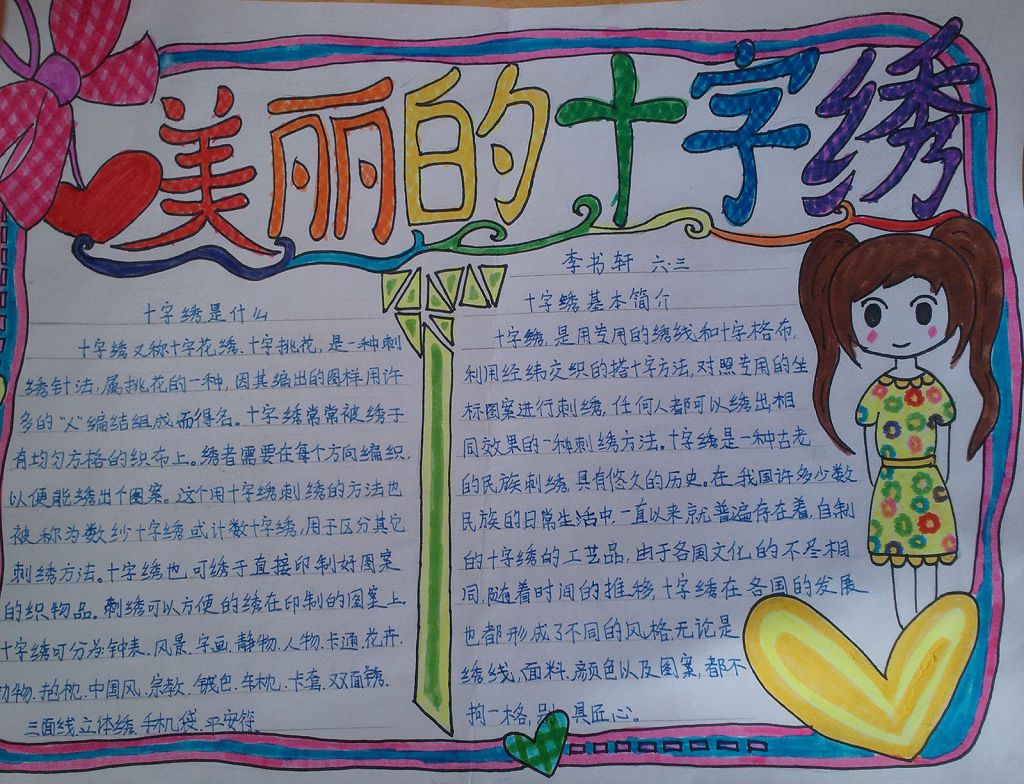 美丽的十字绣
李书轩 六.三
十字绣是什么
十字绣又称十字花绣、十字挑花，是一种刺
绣针法，属挑花的一种，因其编出的图样用许
多的“乂”编结组成而得名。十字绣常常被绣于
有均匀方格的织布上。绣者需要在每个方向编织，
以便能绣出个图案。这个用十字绣刺绣的方法也
被称为数纱十字绣或计数十字绣，用于区分其它
刺绣方法。十字绣也可绣于直接印制好图案
的织物品。刺绣可以方便的绣在印制的图案上。
十字绣可分为：钟表、风景、字画、静物、人物、卡通、花卉、
动物、抱枕、中国风、宗教、钱包、车枕、卡套、双面绣、
三面线、立体绣、手机袋、平安符。
十字绣基本简介
十字绣，是用专用的绣线和十字格布，
利用经纬交织的搭十字方法，对照专用的坐
标图案进行刺绣，任何人都可以绣出相
同效果的一种刺绣方法。十字绣是一种古老
的民族刺绣，具有悠久的历史。在我国许多少数
民族的日常生活中，一直以来就普遍存在着，自制
的十字绣的工艺品，由于各国文化的不尽相
同，随着时间的推移，十字绣在各国的发展
也都形成了不同的风格，无论是
绣线，面料、颜色以及图案，都不
拘一格，别具匠心。